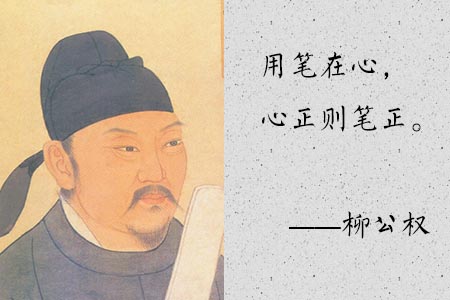 用笔在心，
心正则笔正。
——柳公权